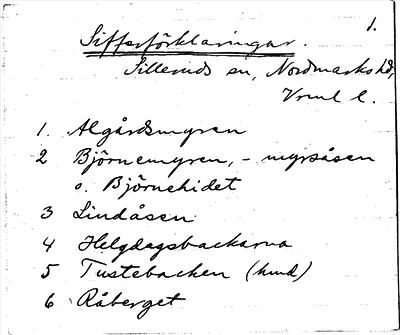 1.
Sifferförklaringar.
Silleruds sn, Nordmarks hd,
Vrml l.
1. Algårdsmyren
2 Björnemyren, - myråsen
o. Björnehidet
3 Lindåsen
4 Helgdagsbackarna
5 Tustebacken (hund)
6 Råberget